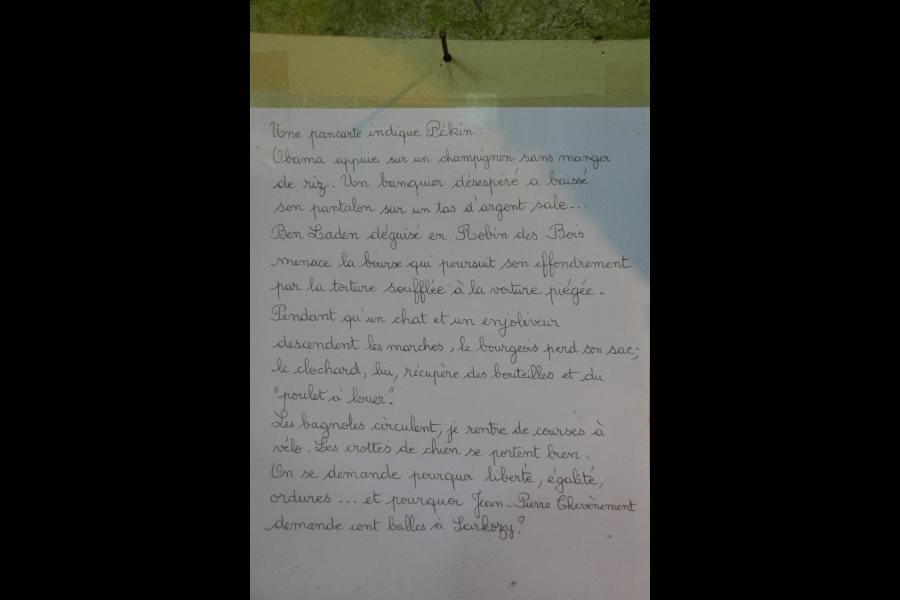 Une pancarte indique Pékin.
Obama appuie sur un champignon sans manger
de riz. Un banquier désespéré a baissé
son pantalon sur un tas d'argent sale...
Ben Laden déguisé en Robin des Bois
menace la bourse qui poursuit son effondrement
par la toiture soufflée à la voiture piégée.
Pendant qu'un chat et un enjoliveur
descendent les marches, le bourgeois perd son sac;
le clochard, lui, récupère des bouteilles et du
"poulet à louer".
Les bagnoles circulent, je rentre de courses à
vélo. Les crottes de chien se portent bien.
On se demande pourquoi liberté, égalité,
ordures ... et pourquoi Jean-Pierre Chevènement
demande cent balles à Sarkozy?